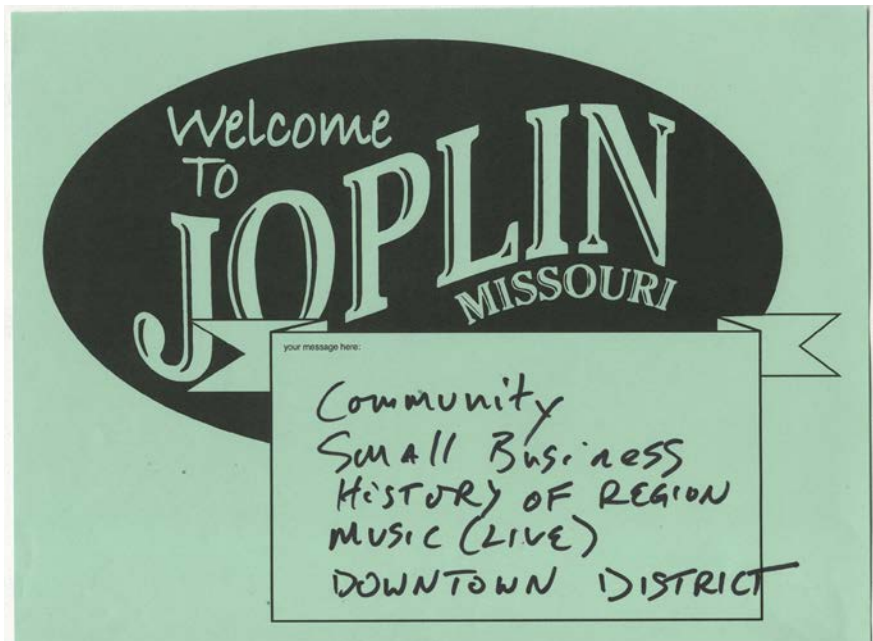 Welcome
To
JOPLIN
MISSOURI
your message here:
Community
Small Business
HISTORY OF REGION
MUSIC (LIVE)
DOWNTOWN DISTRICT